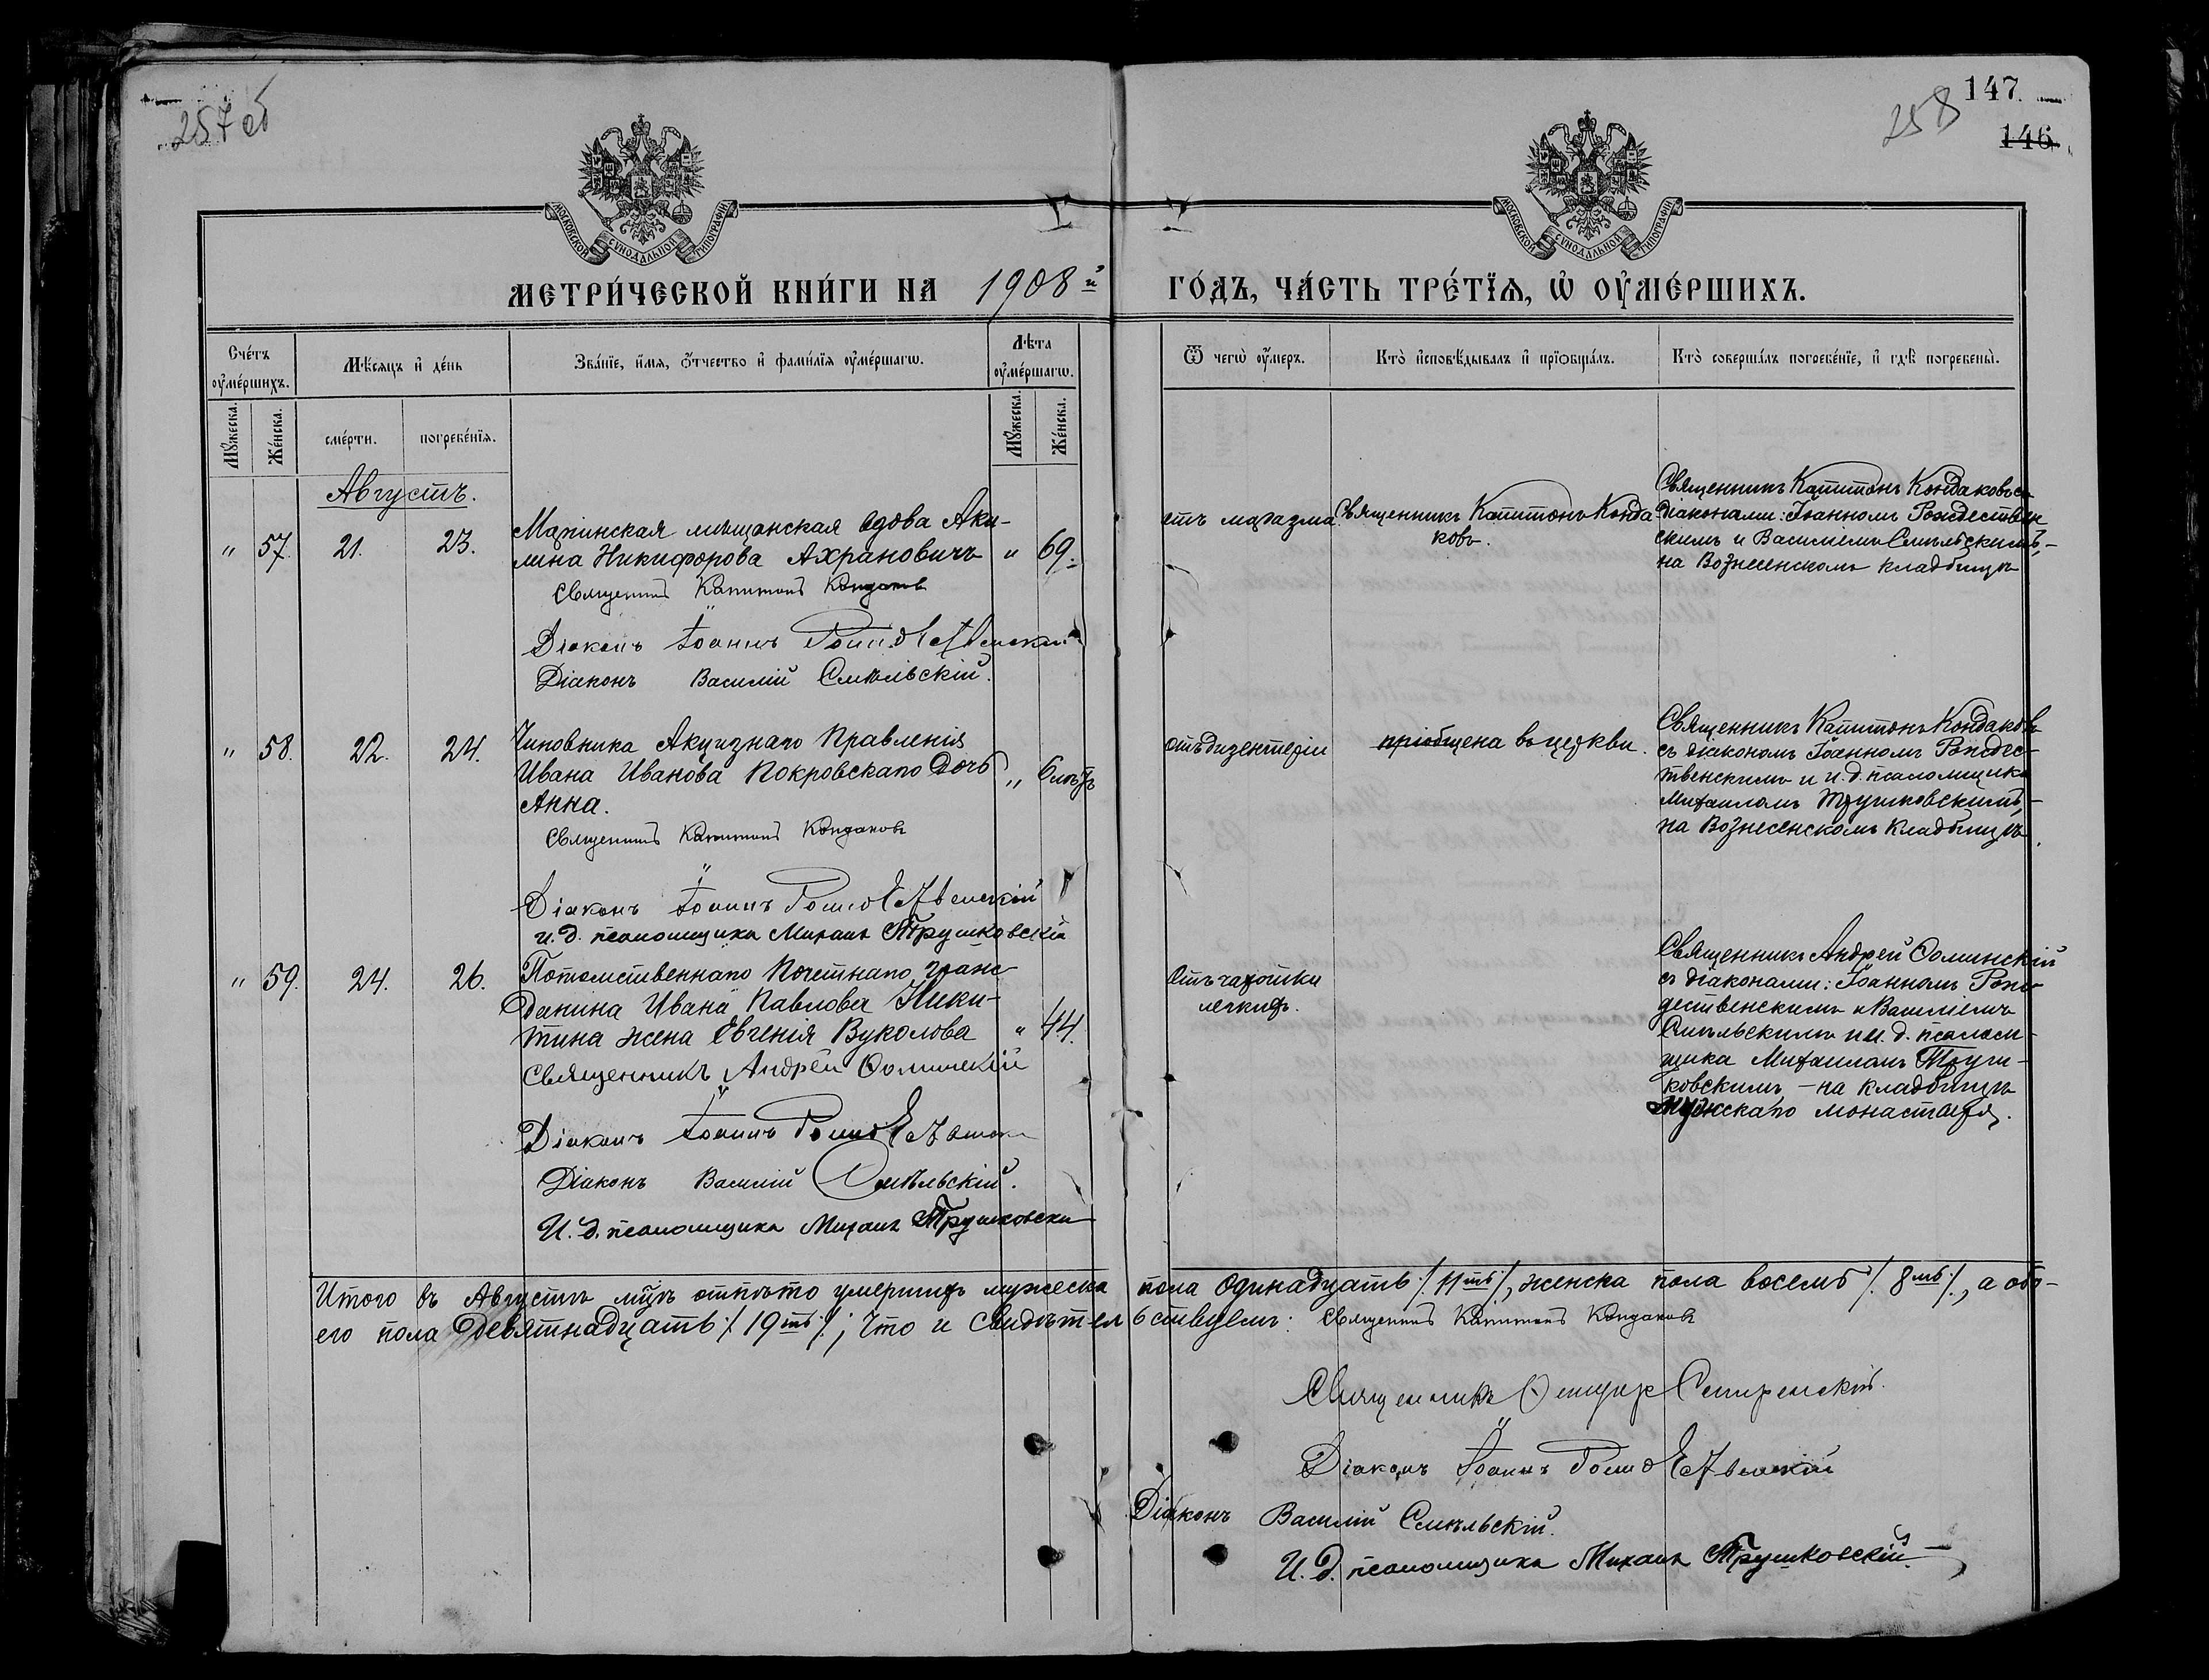 257 об
147.
258
146.
МОСКОВСКОЙ СѴНОДАЛЬНОЙ ТИПОГРАФІИ
МОСКОВСКОЙ СѴНОДАЛЬНОЙ ТИПОГРАФІИ
МЕТРИ́ЧЕСКОЙ КНИ́ГИ НА 1908й ГО́ДЪ, ЧА́СТЬ ТРЕ́ТЇѦ, Ѡ҆ ОУ҆МЕ́РШИХЪ.
Сче́тъ оу҆ме́ршихъ.
Мѣ́сяцъ и҆ де́нь
Зва́нїе, и҆́мя, ѻ҆́тчество и҆ фами́лїя оу҆ме́ршагѡ.
Лѣ́та оу҆ме́ршагѡ.
Ѿ чегѡ̀ оу҆́меръ.
Кто̀ и҆сповѣ́дывалъ и҆ прїѻбща́лъ.
Кто̀ соверша́лъ погребе́нїе, и҆ гдѣ̀ погребены̀.
Мꙋ́жеска.
Же́нска.
сме́рти.
погребе́нїя.
Мꙋ́жеска.
Же́нска.
Августъ.
" 57. 21. 23.
Мапинская мѣщанская вдова Аки-
лина Никифорова Ахрановичъ " 69.
Священникъ Капитонъ Кондаковъ
Діаконъ Іоаннъ Рождественскій
Діаконъ Василій Смѣльскій.
отъ маразма
Священникъ Капитонъ Конда
ковъ.
Священникъ Капитонъ Кондаковъ съ
діаконами: Іоанномъ Рождествен
скимъ и Василіемъ Смѣльскимъ,-
на Вознесенскомъ кладбищѣ
" 58. 22. 24.
Чиновника Акцизнаго Правленія
Ивана Иванова Покровскаго дочь " 6 лѣтъ
Анна.
Священникъ Капитонъ Кондаковъ
Діаконъ Іоаннъ Рождественскій
и. д. псаломщика Михаилъ Трушковскій
отъ дизентеріи
пріобщена въ церкви.
Священникъ Капитонъ Кондаковъ
съ діакономъ Іоанномъ Рождес-
твенскимъ и и. д. псаломщика
Михаиломъ Трушковскимъ, -
на Вознесенскомъ кладбищѣ.
" 59. 24. 26.
Потомственнаго Почетнаго граж-
данина Ивана Павлова Ники-
тина жена Евгенія Вуколова " 44.
Священникъ Андрей
Діаконъ Іоаннъ Рождественскій
Діаконъ Василій Смѣльскій.
И. д. псаломщика Михаилъ Трушковскій
отъ чахотки
легкихъ.
Священникъ Андрей
съ діаконами: Іоанномъ Рож-
дественскимъ и Василіемъ
Смѣльскимъ и и. д. псалом-
щика Михаиломъ Труш-
ковскимъ, - на кладбищѣ
мужскаго монастыря.
Итого въ Августѣ м̃цѣ отпѣто умершихъ мужеска пола одинадцать /11ть/, женска пола восемь /8мь/, а обо-
его пола девятнадцать /19ть/; что и свидѣтельствуемъ: Священникъ Капитонъ Кондаковъ
Священникъ
Діаконъ Іоаннъ Рождественскій
Діаконъ Василій Смѣльскій.
И. д. псаломщика Михаилъ Трушковскій.